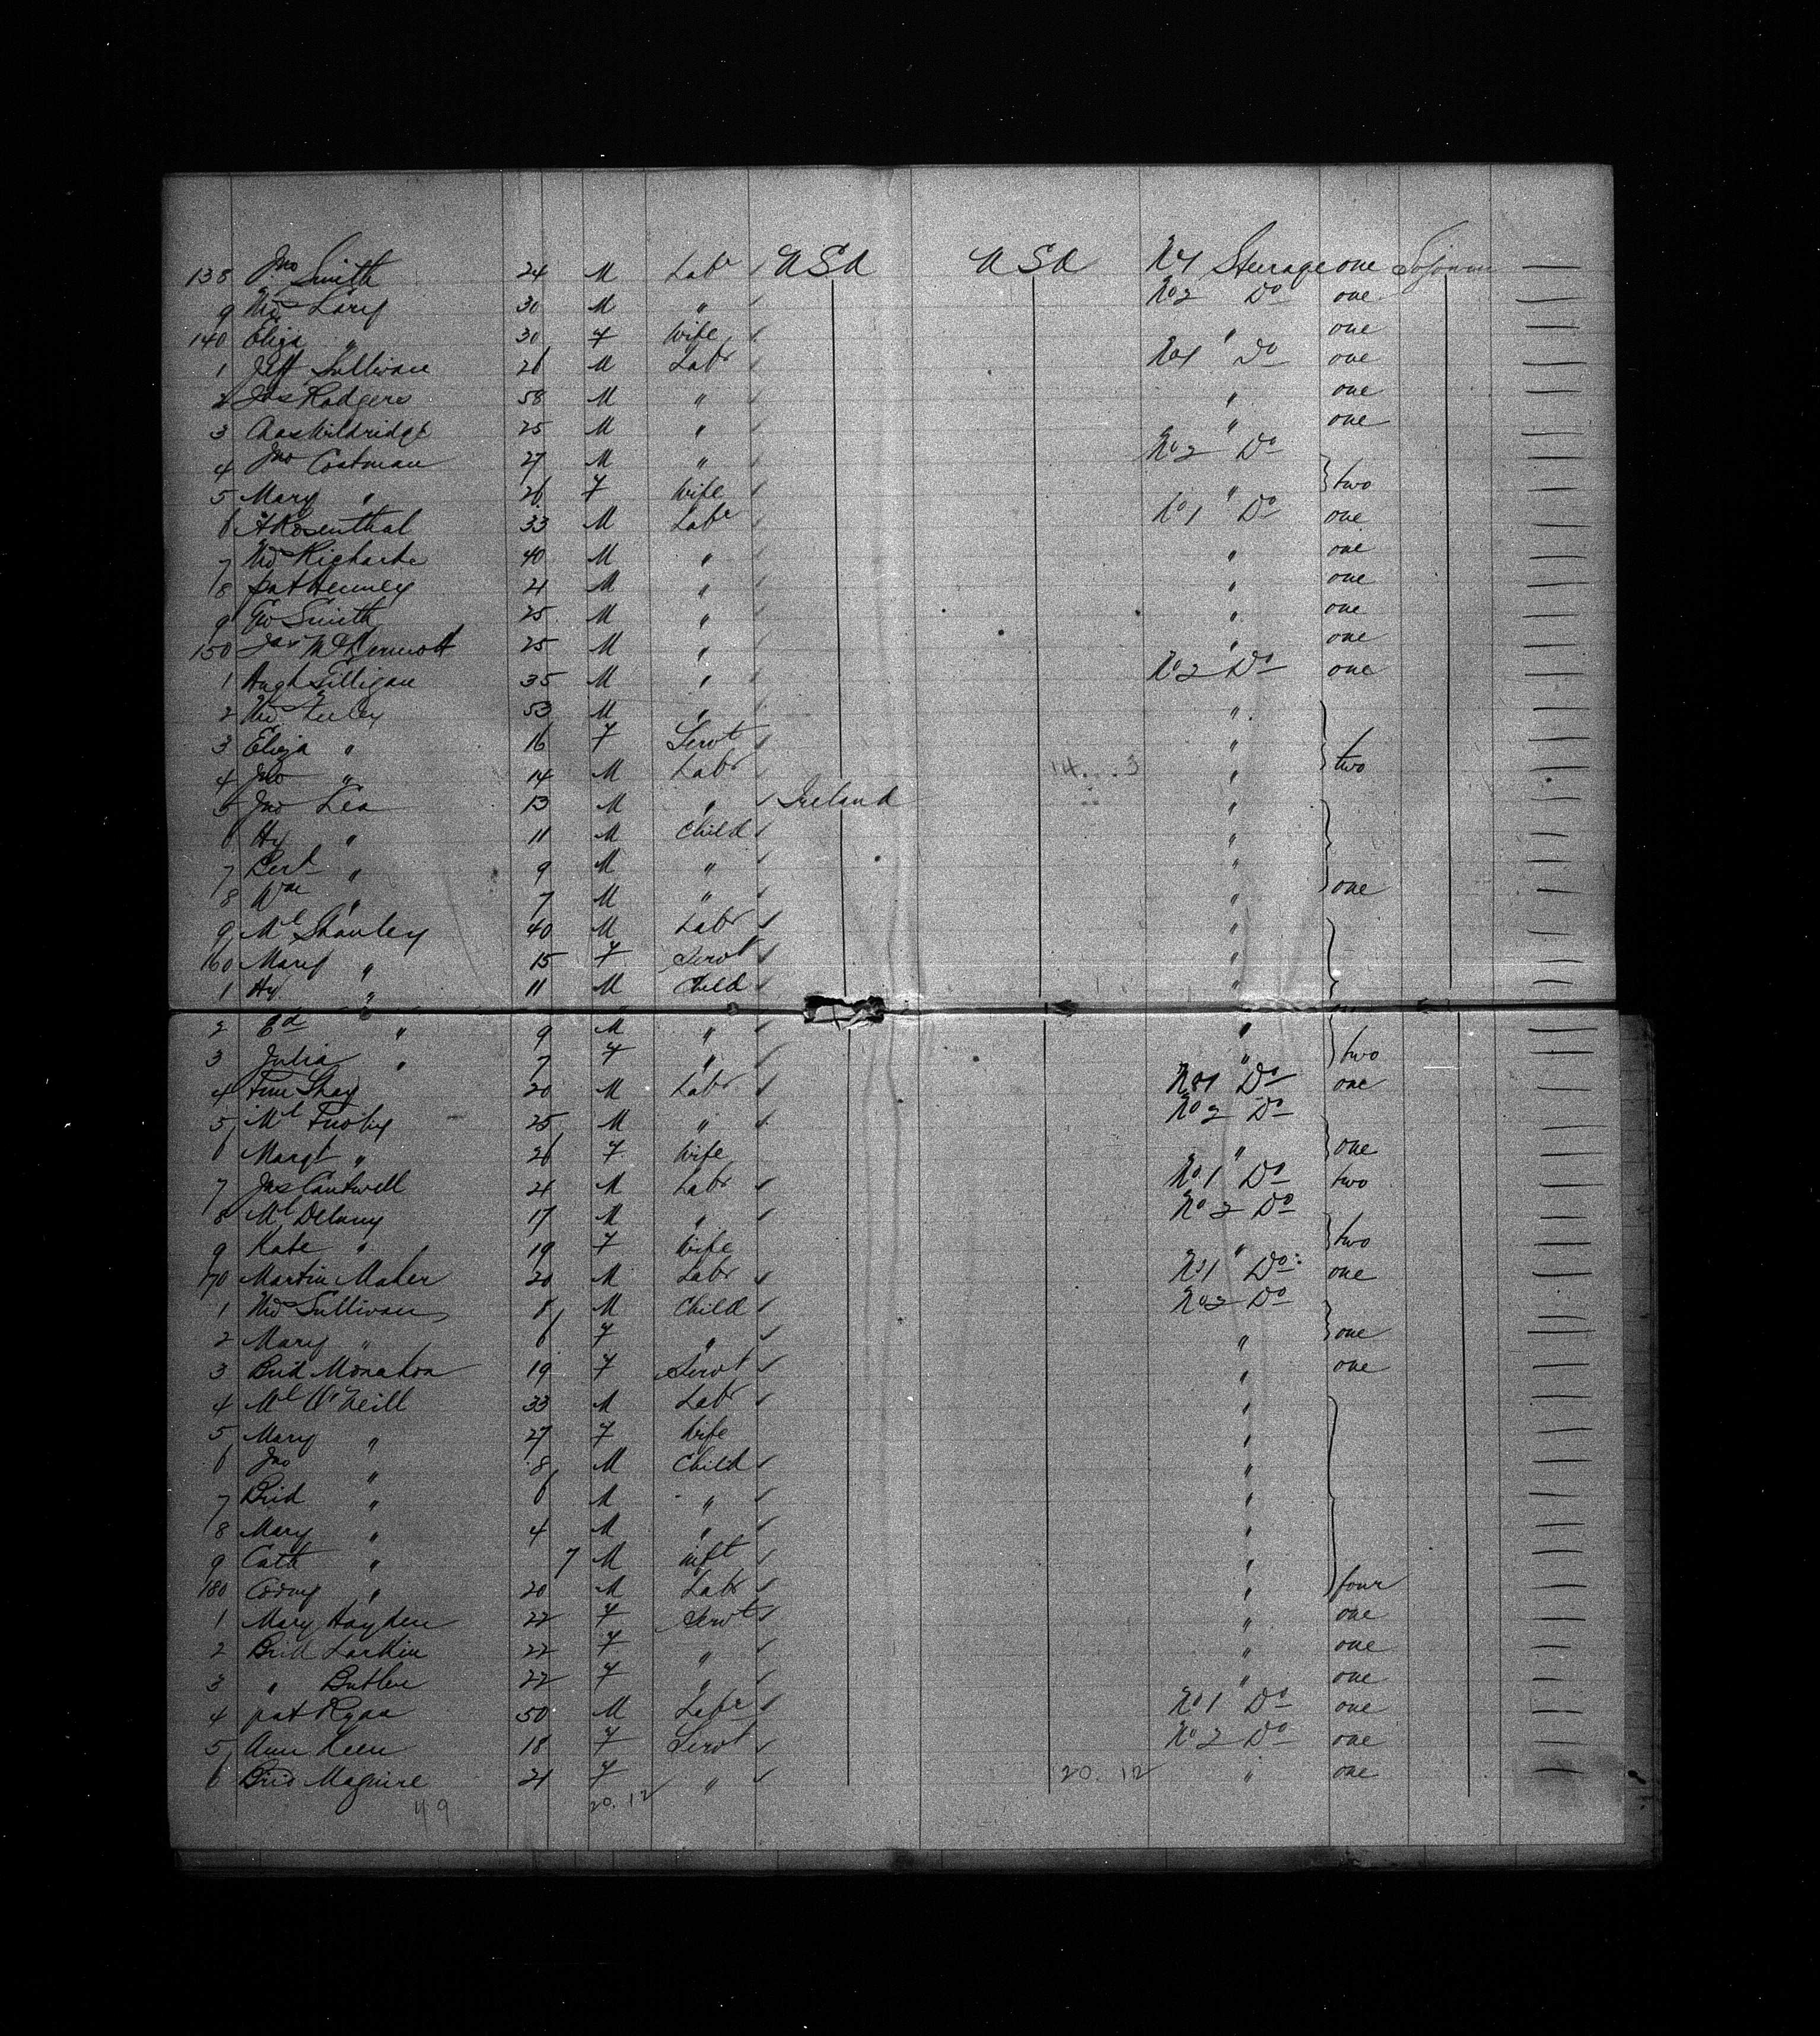 138 Jno Smith 24 M Labr USA USA No 1 Steerage one Sojourn —
9 Lary 30 M " No 2 Do one —
140 Eliza " 30 F Wife " one —
1 Jeff Sullivan 26 M Labr No 1 Do one —
2 Jas Rodgers 58 M " " one —
3 Chas Wildridge 25 M " " one —
4 Jno Coatman 27 M " No 2 Do —
5 Mary " 26 F Wife " two —
6 A Rosenthal 33 M Labr No 1 Do one —
7 40 M " " one —
8 pat 21 M " " one —
9 Geo Smith 25 M " " one —
150 Jas McDermott 25 M " " one —
1 Hugh Gilligan 35 M " No 2 Do one —
2 53 M " " —
3 Eliza " 16 F Servt " —
4 Jno " 14 M Labr 14 . . . 3 " two —
5 Jno Lea 13 M " Ireland " —
6 Hy " 11 M Child " —
7 " 9 M " " —
8 Wm " 7 M " " one —
9 Ml Shanley 40 M Labr " —
160 Mary " 15 F Servt " —
1 Hy " 11 M Child " —
2 Ed " 9 M " " —
3 Julia " 7 F " " two —
4 Tim Shay 20 M Labr No 1 Do one —
5 Ml 25 M " No 2 Do —
6 Margt " 26 F Wife " one —
7 Jas Cantwell 21 M Labr No 1 Do two —
8 Ml Delany 17 M " No 2 Do —
9 Kate " 19 F Wife " two —
170 Martin Maher 20 M Labr No 1 Do one —
1 Sullivan 8 M Child No 2 Do —
2 Mary " 6 F " " one —
3 Brid Monahon 19 F Servt " one —
4 Ml O'Neill 33 M Labr " —
5 Mary " 27 F Wife " —
6 Jno " 8 M Child " —
7 Brid " 6 M " " —
8 Mary " 4 M " " —
9 Cath " 7 M inft " —
180 " 20 M Labr " four —
1 Mary Hayden 22 F Servt " one —
2 Brid Larkin 22 F " " one —
3 " Butler 22 F " " one —
4 pat Ryan 50 M Labr No 1 Do one —
5 Ann Keen 18 F Servt No 2 Do one —
6 Brid Maguire 21 F " 20. 12 " one —
49 20. 12